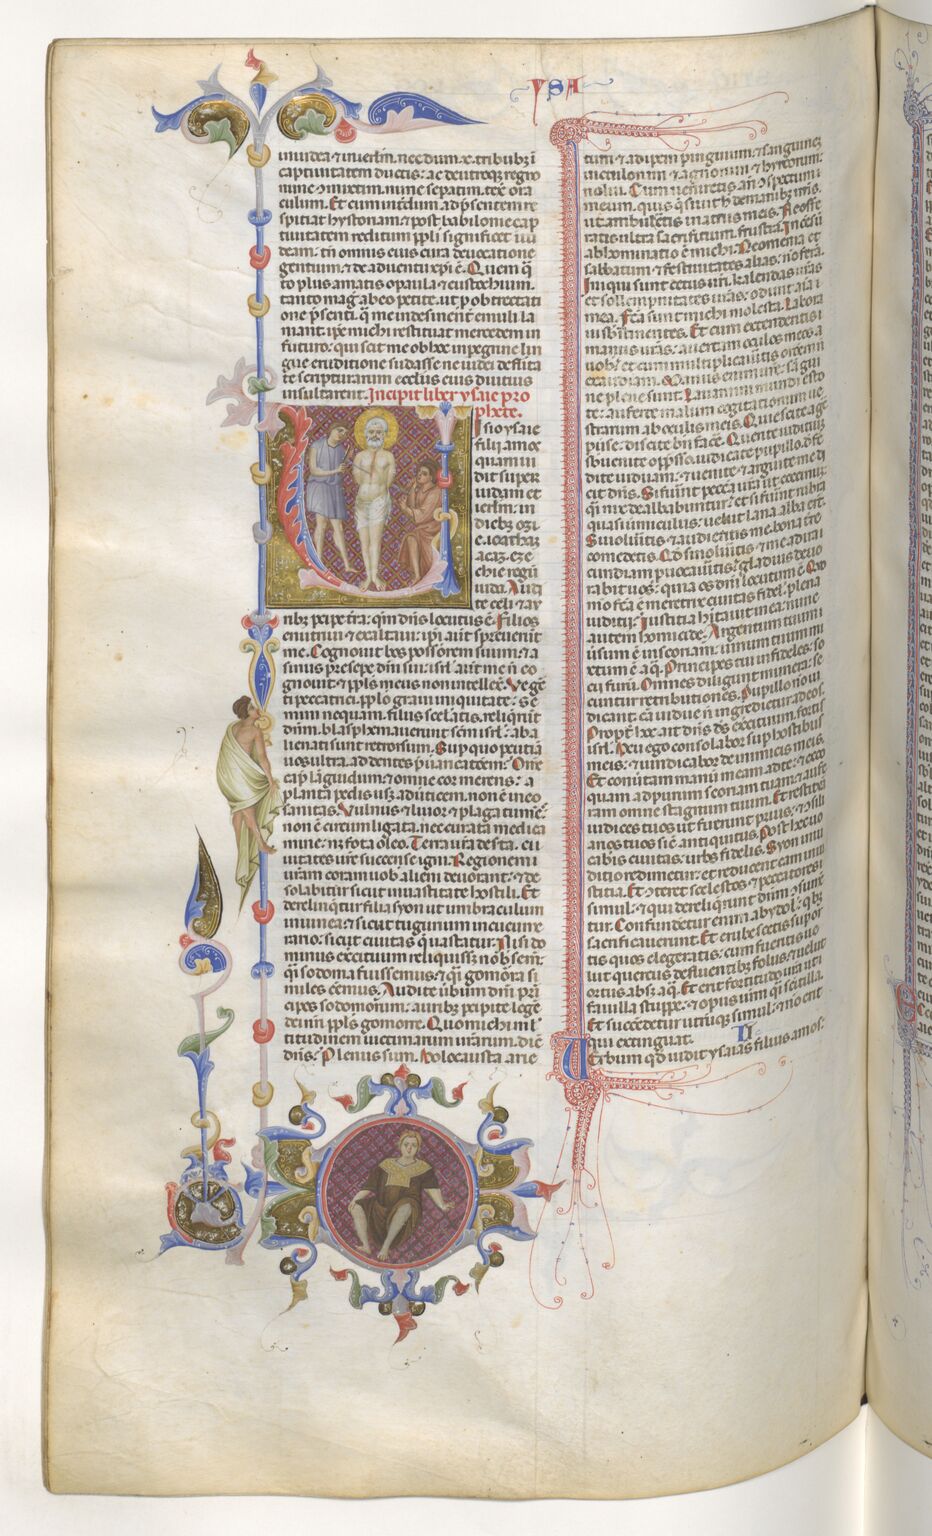 YSA
in iudea ⁊ in ierl̅m. nec dum .x. tribub; ī
captiuitatem ductis: ac de utroq; regno
nunc ɔmixtim. nunc separatim. texit ora
culum. Et cum interdum ad p̄sentem re
spiciat hystoriam: ⁊ post babilonie cap
tiuitatem reditum ppl̅i significet in iu
deam: tn̅ omnis eius cura de uocatione
gentium: ⁊ de aduentu xp̅i ē. Quem q̄
to plus amatis o paula ⁊ eustochium:
tanto mag̕ ab eo petite. ut p̱ obtrectati
one p̄senti. q̄ me indesinent̕ emuli la
niant: ip̄e michi restituat mercedem in
futuro: qui scit me ob hoc in peregrine lin
gue eruditione sudasse: ne iudei de falsita
te scripturarum eccl̅iis eius diutius
insultarent. Incipit liber ysaie pro
phete.
Uisio ysaie
filii amos
quam ui
dit super
iudam et
ierl̅m: in
dieb; ozi
e. ioathan.
acaz. eze
chie regū
iuda. Audi
te celi. ⁊ au
rib; p̱cipe t̄ra: qm̅ dn̅s locutus ē. Filios
enutriui ⁊ exaltaui: ip̄i aūt spreuerūt
me. Cognouit bos possessorem suum: ⁊ a
sinus presepe dn̅i sui: isrl̅ aūt me n̄ co
gnouit: ⁊ pp̅ls meus non intellex̄. Ve gē
ti peccatrici. ppl̅o graui iniquitate: se
mini nequam. filiis sceleratis. reliq̄rūt
dn̅m. blasphemauerunt sc̅m isrl̅: aba
lienati sunt retrorsum. Sup quo p̱cutiā
uos ultra. addentes p̱uaricatōem: Om̄e
cap̄ languidum: ⁊ omne cor merens: a
planta pedis usq; ad uerticem. non ē in eo
sanitas. Vulnus ⁊ liuor ⁊ plaga tumēs:
non ē circumligata. nec curata medica
mine: n̄ fota oleo. Terra ur̄a deserta. ci
uitates ur̄e succense igni. Regionem u
uram coram uob̄ alieni deuorant: ⁊ de
solabitur sicut in uastitate hostili. Et
derelinquetur filia syon ut umbraculum
in uinea: ⁊ sicut tugurium in cucume
rario: sicut ciuitas q̄ uastatur. Nisi do
minus exercituum reliquisset nob̄ sem̄:
q̄si sodoma fuissemus: ⁊ q̄si gomorra si
miles eēmus. Audite u̅bum dn̅i prī
cipes sodomorum: auribus p̱cipite legē
dei nr̄i ppl̅s gomorre. Quo michi ml̅
titudinem uictimarum urarum. dic̄
dn̅s: Plenus sum. holocausta arie
tum: ⁊ adipem pinguium: ⁊ sanguinē
uitulorum ⁊ agnorum ⁊ hyrcorum:
nolui. Cum ueniretis an̄ ɔspectum
meum. quis q̄siuit h̄ de manib; ur̄is.
ut ambularetis in atriis meis. Ne offe
ratis ultra sacrificium. frustra. Incēsū
abhominatio ē michi. Neomenia et
sabbatum. ⁊ festiuitates alias: nō ferā.
Iniqui sunt cetus ur̄i. kalendas ur̄as
et sollempnitates ur̄as: odiuit aīa
mea. Facta sunt michi molesta. labora
ui sustinentes. Et cum extenderitis
manus ur̄as: auertam oculos meos a
uob̄: et cum multiplicaueritis orōem:
n̄ exaudiam. Manus enim ur̄e sangui
ne plene sunt. Lauamini mundi esto
te: auferte malum cogitationum ue
strarum ab oculis meis. Quiescite ag̕e
p̱uerse: discite bn̄ facē. Querite iudiciū:
subuenite opp̄sso. iudicate pupillo. defē
dite uiduam: ⁊ uenite. ⁊ arguite me di
cit dn̅s. Si fuerint peccata ur̄a ut coccinum:
q̄si nix dealbabuntur: et si fuerint rubra
quasi uermiculus: uelut lana alba erūt.
Si uolueritis ⁊ audieritis me. bona t̄re
comedetis. Qd̕ si nolueritis ⁊ me ad ira
cundiam puocaueritis: gladius deuo
rabit uos: quia os dn̅i locutum ē. Quo
modo facta ē meretrix ciuitas fidel̕. plena
iudicii: Iustitia hītauit in ea: nunc
autem homicide. Argentum tuum
uersum ē in scoriam: uinum tuum mi
xtum ē aq̄. Principes tui infideles: so
cii furū. Omnes diligunt munera: se
cuntur retributiones. Pupillo nō iu
dicant: cā uidue n̄ ingreditur ad eos.
Propt̕ hoc. ait dn̅s ds̄ exercituum. fortis
isrl̅. Heu ego consolabor sup hostibus
meis: ⁊ uindicabor de inimicis meis.
Et conuertam manū meam ad te: ⁊ exco
quam ad purum scoriam tuam: ⁊ aufe
ram omne stagnum tuum. Et restituā
iudices tuos ut fuerunt prius: ⁊ ɔsili
arios tuos sic̄ antiquitus. Post hec uo
caberis ciuitas iusti: urbs fidelis. Syon in iu
ditio redimetur: et reducent eam in iu
stitia. Et ɔteret scelestos ⁊ peccatores
simul: ⁊ qui dereliquerunt dn̅m: ɔsumē
tur. Confundentur enim ab ydol̕: q̄b;
sacrificauerunt. Et erubescetis sup̱ or
tis quos elegeratis: cum fueritis ue
lut quercus defluentib; foliis: ⁊ uelut
ortus absq; aq̄. Et erit fortitudo ur̄a ut
fauilla stuppe: ⁊ opus ur̄m q̄si scintilla.
Et succendetur utrūq; simul: ⁊ nō erit
qui extinguat. II
Uerbum qd̕ uidit ysaias filius amos: